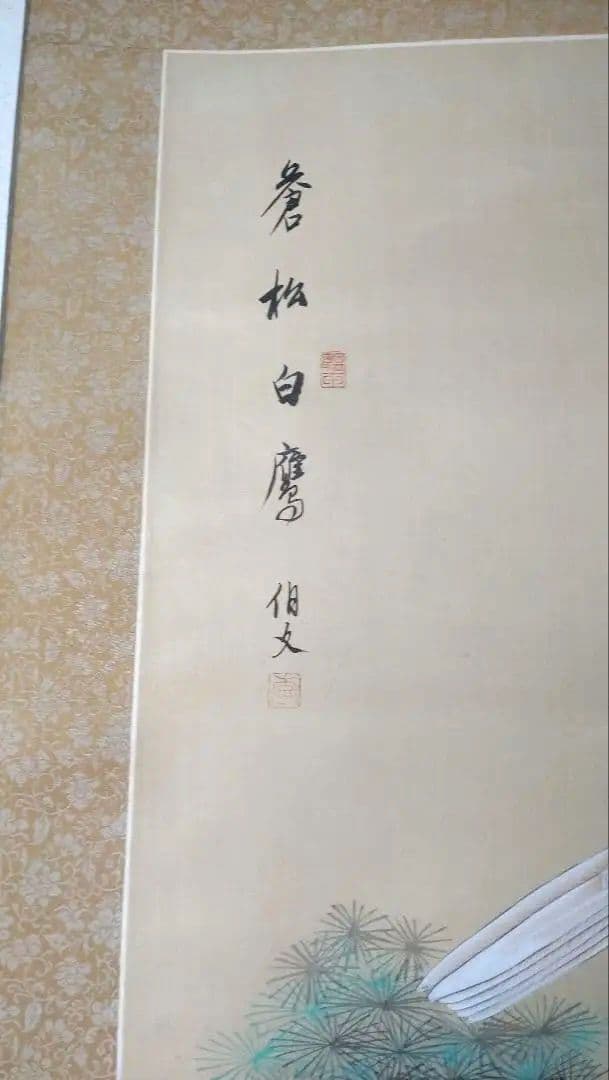 蒼松白鹰
伯文